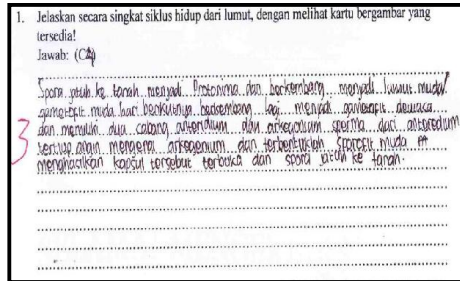 1. Jelaskan secara singkat siklus hidup dari lumut, dengan melihat kartu bergambar yang
tersedia!
Jawab: (C2)
Spora jatuh ke tanah menjadi Protonima dan berkembang menjadi lumut muda/
gametofit muda hari berikutnya berkembang lagi menjadi gametofit dewasa
dan memiliki dua cabang anteridium dan arkegonium sperma dari anteredium
tertiup angin mengenai arkegonium dan terbentuklah Sporofit muda
menghasilkan kapsul tersebut terbuka dan spora jatuh ke tanah.
3